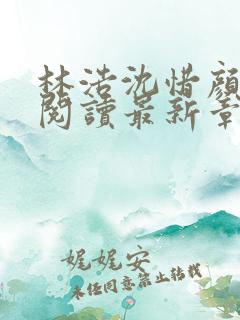 林浩沈惜顏
閱讀最新章
娓娓安
未经同意禁止转载